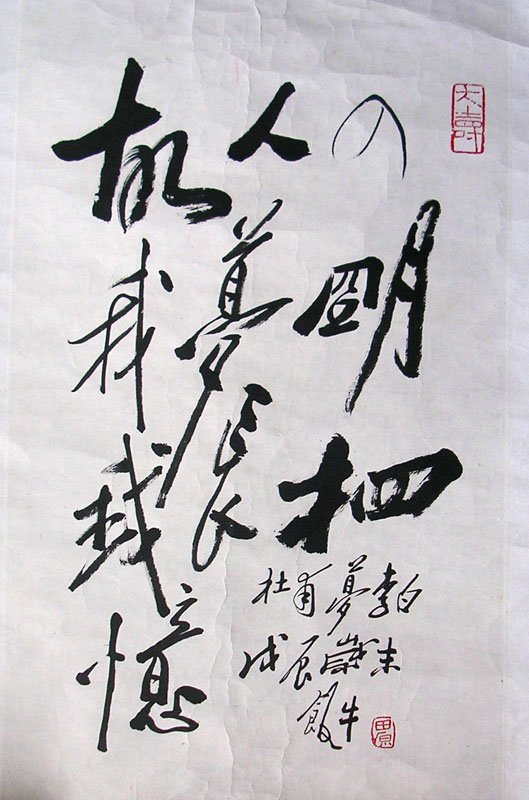 故人入
我夢明
我長相
憶
杜甫夢李白
戊辰歲末
飯牛
田原